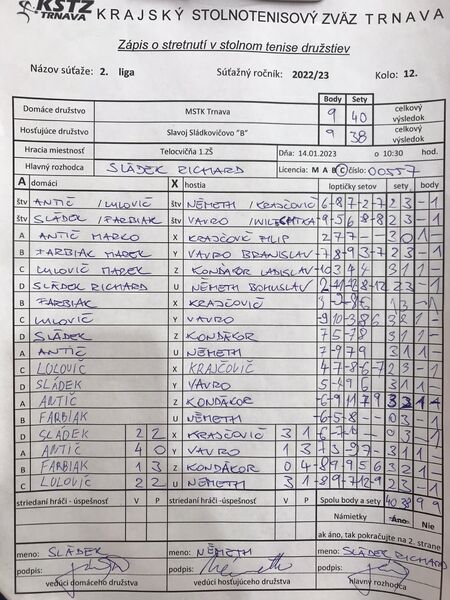 KSTZ TRNAVA KRAJSKÝ STOLNOTENISOVÝ ZVÄZ TRNAVA
Zápis o stretnutí v stolnom tenise družstiev
Názov súťaže: 2. liga Súťažný ročník: 2022/23 Kolo: 12.
Body Sety
Domáce družstvo MSTK Trnava 9 40 celkový výsledok
Hosťujúce družstvo Slavoj Sládkovičovo "B" 9 38 celkový výsledok
Hracia miestnosť Telocvičňa 1.ZŠ Dňa: 14.01.2023 o 10:30 hod.
Hlavný rozhodca SLÁDEK RICHARD Licencia: M A B C číslo: 00557
A domáci X hostia loptičky setov sety body
štv ANTIČ / LULOVIČ štv NÉMETH / KRAJČOVIČ 6 -8 7 -2 -7 2 3 - 1
štv SLÁDEK / FARBIAK štv VAVRO / 2 3 - 1
A ANTIČ MARKO X KRAJČOVIČ FILIP 2 7 7 - - 3 0 1 -
B FARBIAK MAREK Y VAVRO BRANISLAV -7 8 -9 3 -7 2 3 - 1
C LULOVIČ MAREK Z KONDÁKOR LADISLAV -10 3 4 4 3 1 1 -
D SLÁDEK RICHARD U NÉMETH BOHUSLAV 2 3 - 1
B FARBIAK X KRAJČOVIČ 1 3 - 1
C LULOVIČ Y VAVRO -9 10 -3 8 6 3 2 1 -
D SLÁDEK Z KONDÁKOR 7 5 -7 8 3 1 1 -
A ANTIČ U NÉMETH 7 -9 7 9 3 1 1 -
C LULOVIČ X KRAJČOVIČ 4 7 -8 -6 -7 2 3 - 1
D SLÁDEK Y VAVRO 5 -4 9 6 3 1 1 -
A ANTIČ Z KONDÁKOR -6 -9 11 7 9 3 2 1 -
B FARBIAK U NÉMETH -6 -5 -8 - - 0 3 - 1
D SLÁDEK 2 2 X KRAJČOVIČ 3 1 -6 -7 - - 0 3 - 1
A ANTIČ 4 0 Y VAVRO 1 3 3 1 1 -
B FARBIAK 1 3 Z KONDÁKOR 0 4 -8 9 9 5 6 3 2 1 -
C LULOVIČ 2 2 U NÉMETH 3 1 -8 9 -7 12 3 1 1 -
striedaní hráči - úspešnosť V P striedaní hráči - úspešnosť V P Spolu body a sety 40 38 9 9
Námietky áno Nie
ak áno, tak pokračujte na 2. strane
meno: SLÁDEK meno: NÉMETH meno: SLÁDEK RICHARD
podpis: podpis: podpis:
vedúci domáceho družstva vedúci hosťujúceho družstva hlavný rozhodca